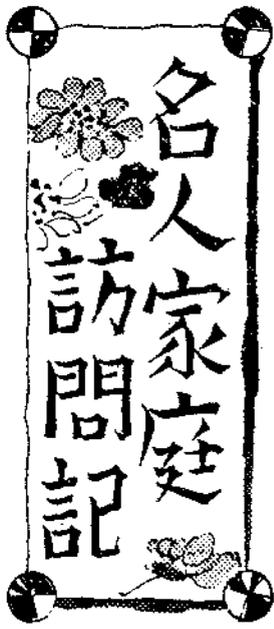 名人家庭
訪問記